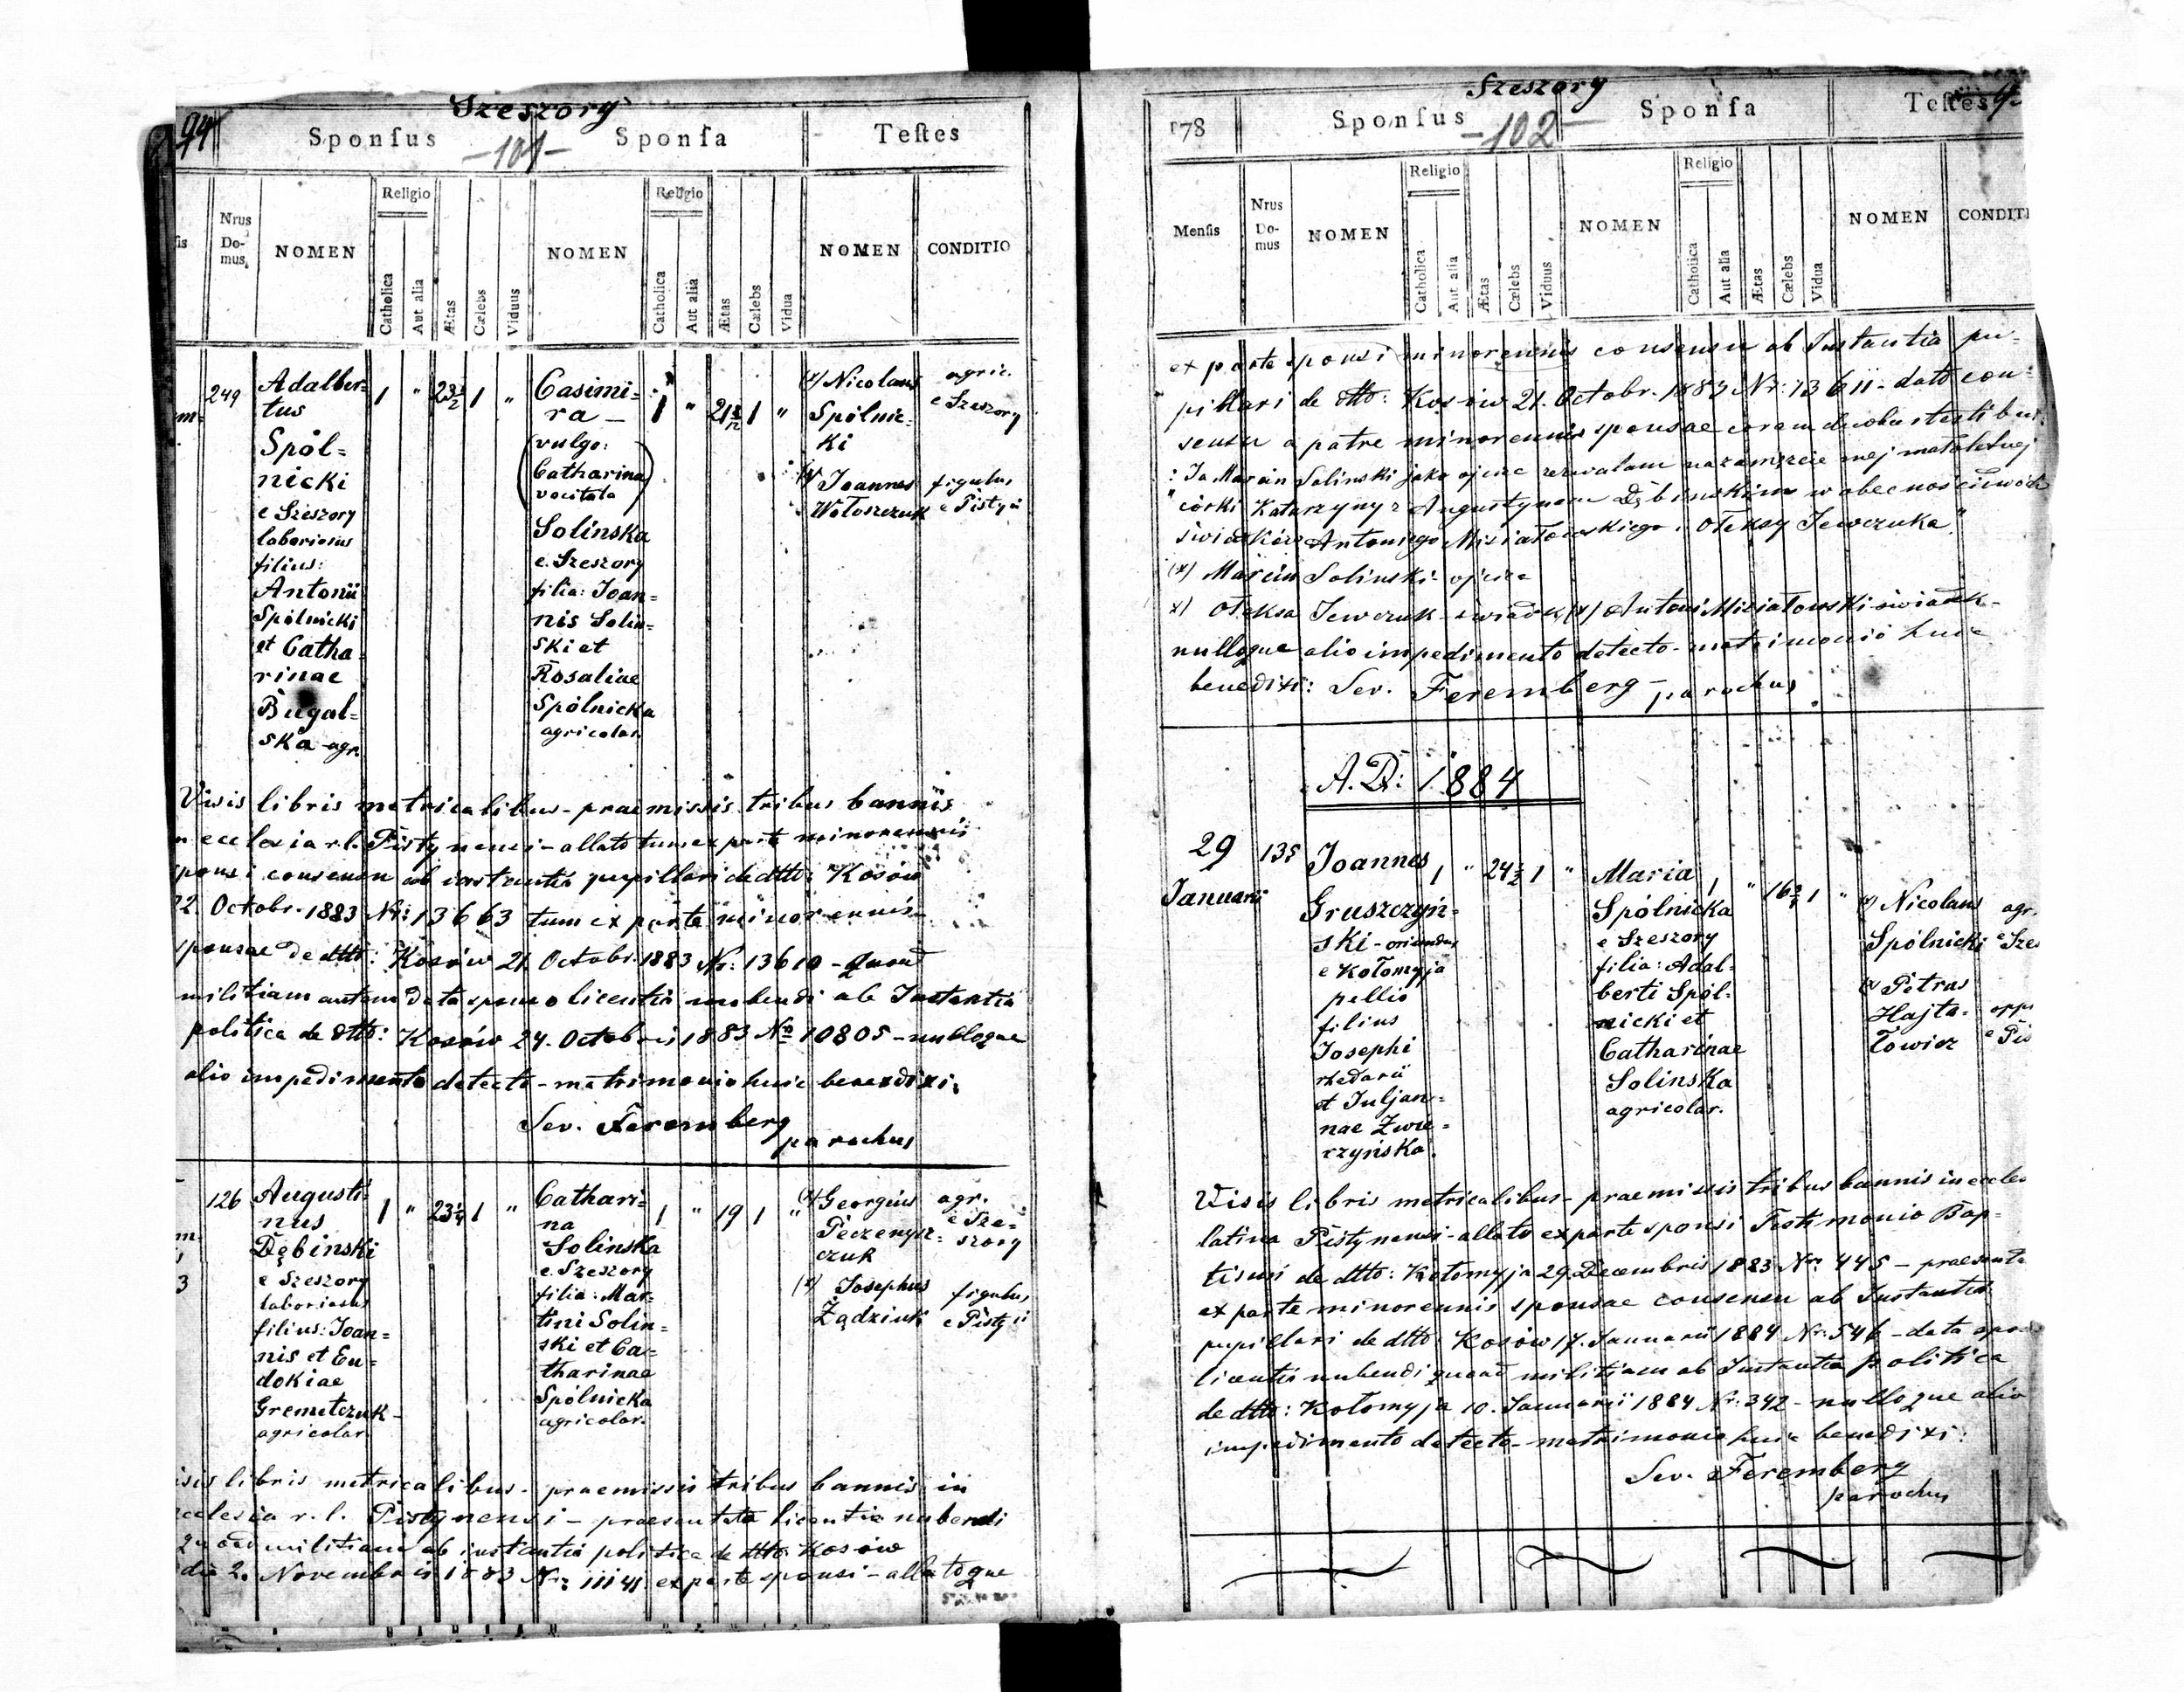 Szeszory
94
Sponsus
-101-
Sponsa
Testes
Nrus Domus
NOMEN
Religio
Catholica
Aut alia
Ætas
Cælebs
Viduus
NOMEN
Religio
Catholica
Aut alia
Ætas
Cælebs
Vidua
NOMEN
CONDITIO
249
Adalber=
tus
Spól=
nicki
e Szeszory
laboriosus
filius:
Antonii
Spólnicki
et Catha=
rinae
Bugal=
ska agr.
1 " 1 "
Casimi=
ra —
(vulgo:
Catharina
vocitata)
Solinska
e Szeszory
filia: Joan=
nis Solin=
ski et
Rosaliae
Spólnicka
agricolar.
1 " 1 "
(x) Nicolaus
Spólnic=
ki
agric.
e Szeszory
(x) Joannes
Wołoszczuk
figulus
e Pistyń
Visis libris metricalibus - praemissis tribus bannis
ecclesia r.l. Pistynensi - allato tum ex parte minorennis
sponsi consensu ab instantia pupillari de dtto: Kosów
22. Octobr. 1883 Nr: 13663 tum ex parte minorennis
sponsae de dtto: Kosów 21. Octobr. 1883 Nr: 13610 - quoad
militiam autem data sponso licentia nubendi ab Instantia
politica de dtto: Kosów 24. Octobris 1883 No 10805 - nulloque
alio impedimento detecto - matrimonio huic benedixi.
Sev. Feremberg
parochus
126
Augusti=
nus
Dębinski
e Szeszory
laboriosus
filius: Joan=
nis et Eu=
dokiae
Gremetczuk -
agricolar.
1 " 23 1 "
Cathari=
na
Solinska
e Szeszory
filia: Mar=
tini Solin=
ski et Ca=
tharinae
Spólnicka
agricolar.
1 " 19 1 "
(x) Georgius
Peczenysz=
czuk
agr.
e Sze=
szory
(x) Josephus
Żądziuk
figulus
e Pistyń
libris metricalibus - praemissis tribus bannis in
ecclesia r. l. Pistynensi - praesentata licentia nubendi
quoad militiam ab instantia politica de dtto Kosów
2. Novembris 1883 Nr: 11141 ex parte sponsi - allatoque
Szeszory
178
Sponsus
-102-
Sponsa
Testes
Mensis
Nrus Domus
NOMEN
Religio
Catholica
Aut alia
Ætas
Cælebs
Viduus
NOMEN
Religio
Catholica
Aut alia
Ætas
Cælebs
Vidua
NOMEN
CONDITI
ex parte sponsi minorennis consensu ab Instantia pu=
pillari de dtto: Kosów 21. Octobr. 1883 Nr: 13611 - dato con=
sensu a patre minorennis sponsae coram duobus testibus:
: Ja Marcin Solinski jako ojciec zezwalam na zamęście mej małoletnej
"córki Katarzyny z Augustynem Dębinskim w obecności dwóch
świadków Antoniego Misiałowskiego i Ołeksy Jewczuka."
(x) Marcin Solinski - ojciec
x) Ołeksa Jewczuk - świadek (x) Antoni Misiałowski świadek -
nulloque alio impedimento detecto - matrimonio huic
benedixi: Sev. Feremberg - parochus
A.D: 1884
29
Januarii
135
Joannes
Gruszczyń=
ski - oriundus
e Kołomyja
pellio
filius
Josephi
rhedarii
et Juljan=
nae Zwie=
rzyńska.
1 " 1 "
Maria
Spólnicka
e Szeszory
filia: Adal=
berti Spól=
nicki et
Catharinae
Solinska
agricolar.
1 " 1 "
(x) Nicolaus
Spólnicki
agr.
e Sze
(x) Petrus
Hajta=
łowicz
opp
e Pis
Visis libris metricalibus - praemissis tribus bannis in eccles
latina Pistynensi - allato ex parte sponsi Testimonio Bap=
tismi de dtto: Kołomyja 29. Decembris 1883 Nr. 445 - praesentato
ex parte minorennis sponsae consensu ab Instantia
pupillari de dtto: Kosów 17. Januarii 1884 Nr: 546 - data
licentia nubendi quoad militiam ab Instantia politica
de dtto: Kołomyja 10. Januarii 1884 Nr: 342 - nulloque alio
impedimento detecto - matrimonio huic benedixi:
Sev. Feremberg
parochus